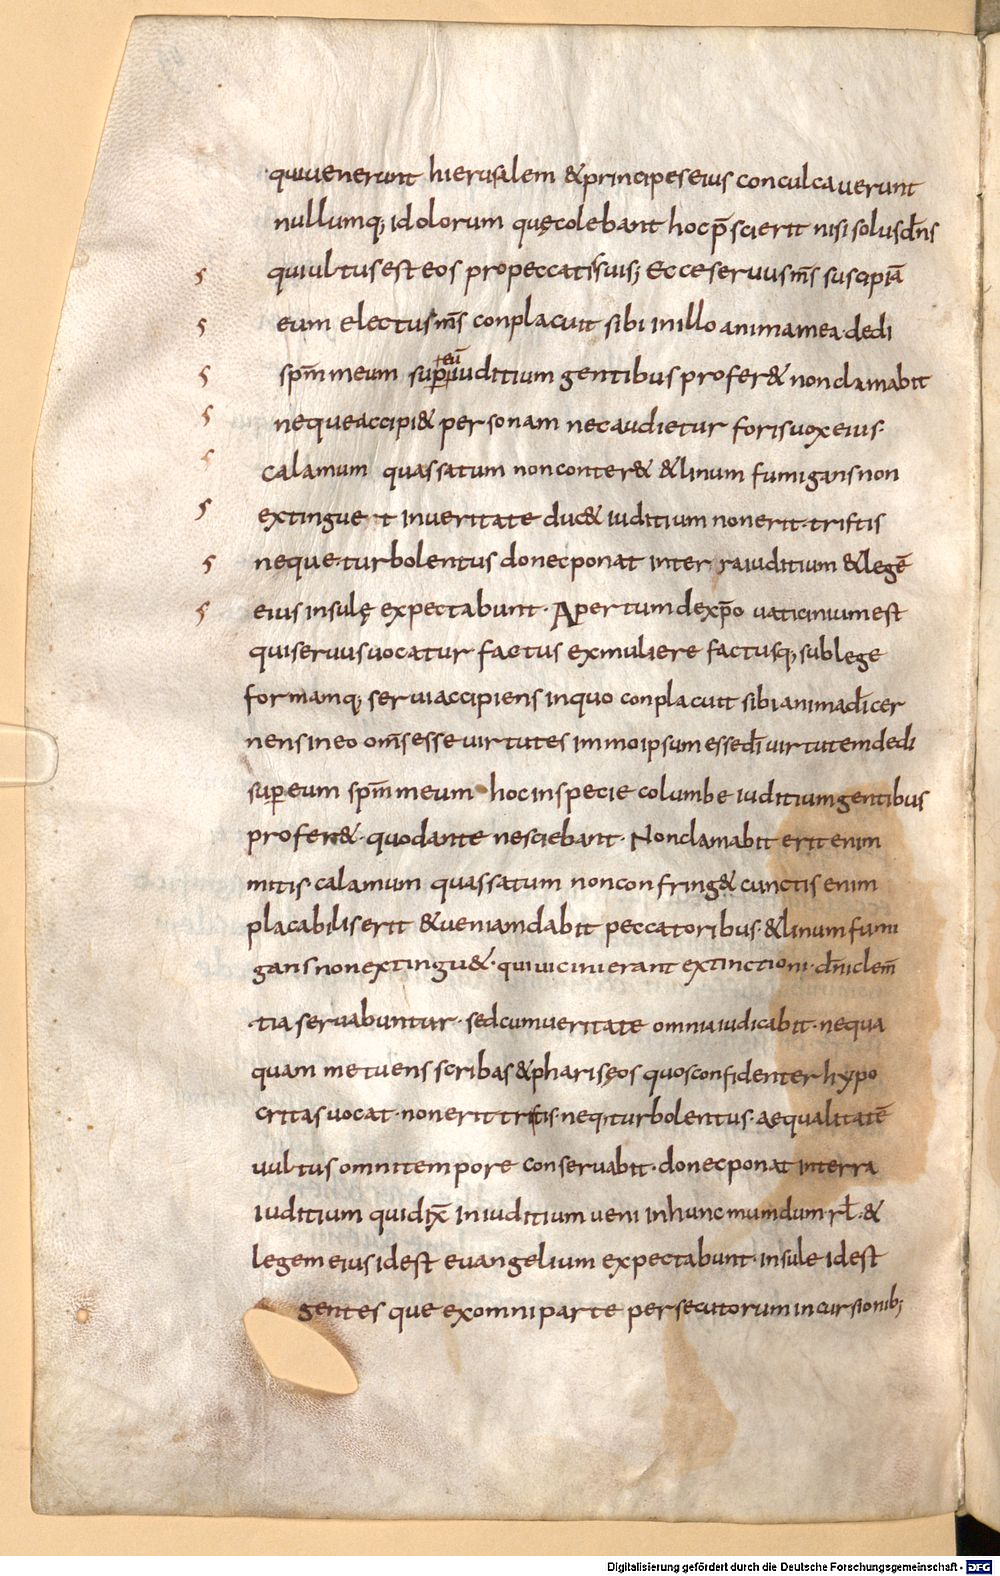 quiuenerunt hierusalem & principes eius conculcauerunt
nullumq; idolorum quę colebant hoc p̄scierit nisi solus dn̄s
qui ultus est eos pro peccatis suis; Ecce seruus ms̄ suscipiā
eum electus ms̄ conplacuit sibi in illo anima mea dedi
spm̄ meum sup eū iuditium gentibus profer& non clamabit
neque accipi& personam nec audietur foris uox eius·
calamum quassatum non conter& & linum fumigans non
extinguet in ueritate duc& iuditium non erit· tristis
neque· turbolentus donec ponat inter ra iuditium & legē
eius insulę expectabunt· Apertum de xp̄o uaticinium est
qui seruus uocatur factus ex muliere factusq; sub lege
formamq; serui accipiens in quo conplacuit sibi anima dī cer
nens in eo oms̄ esse uirtutes immo ipsum esse dī uirtutem dedi
sup eum spm̄ meum hoc in specie columbe iuditium gentibus
profer&· quod ante nesciebant· Non clamabit erit enim
mitis· calamum quassatum non confring& cunctis enim
placabilis erit & ueniam dabit peccatoribus· & linum fumi
gans non extingu&· qui uicini erant extinctioni· dn̄i clem̄
·tia seruabuntur· sed cum ueritate omnia iudicabit· nequa
quam metuens scribas & phariseos quos confidenter hypo
critas uocat· non erit tristis· neq; turbolentus· aequalitatē
uultus omni tempore conseruabit· donec ponat in terra
iuditium qui dix̄ in iuditium ueni in hunc mundum rł· &
legem eius id est euangelium expectabunt· insule id est
gentes que ex omni parte persecutorum incursionib;
Digitalisierung gefördert durch die Deutsche Forschungsgemeinschaft - DFG